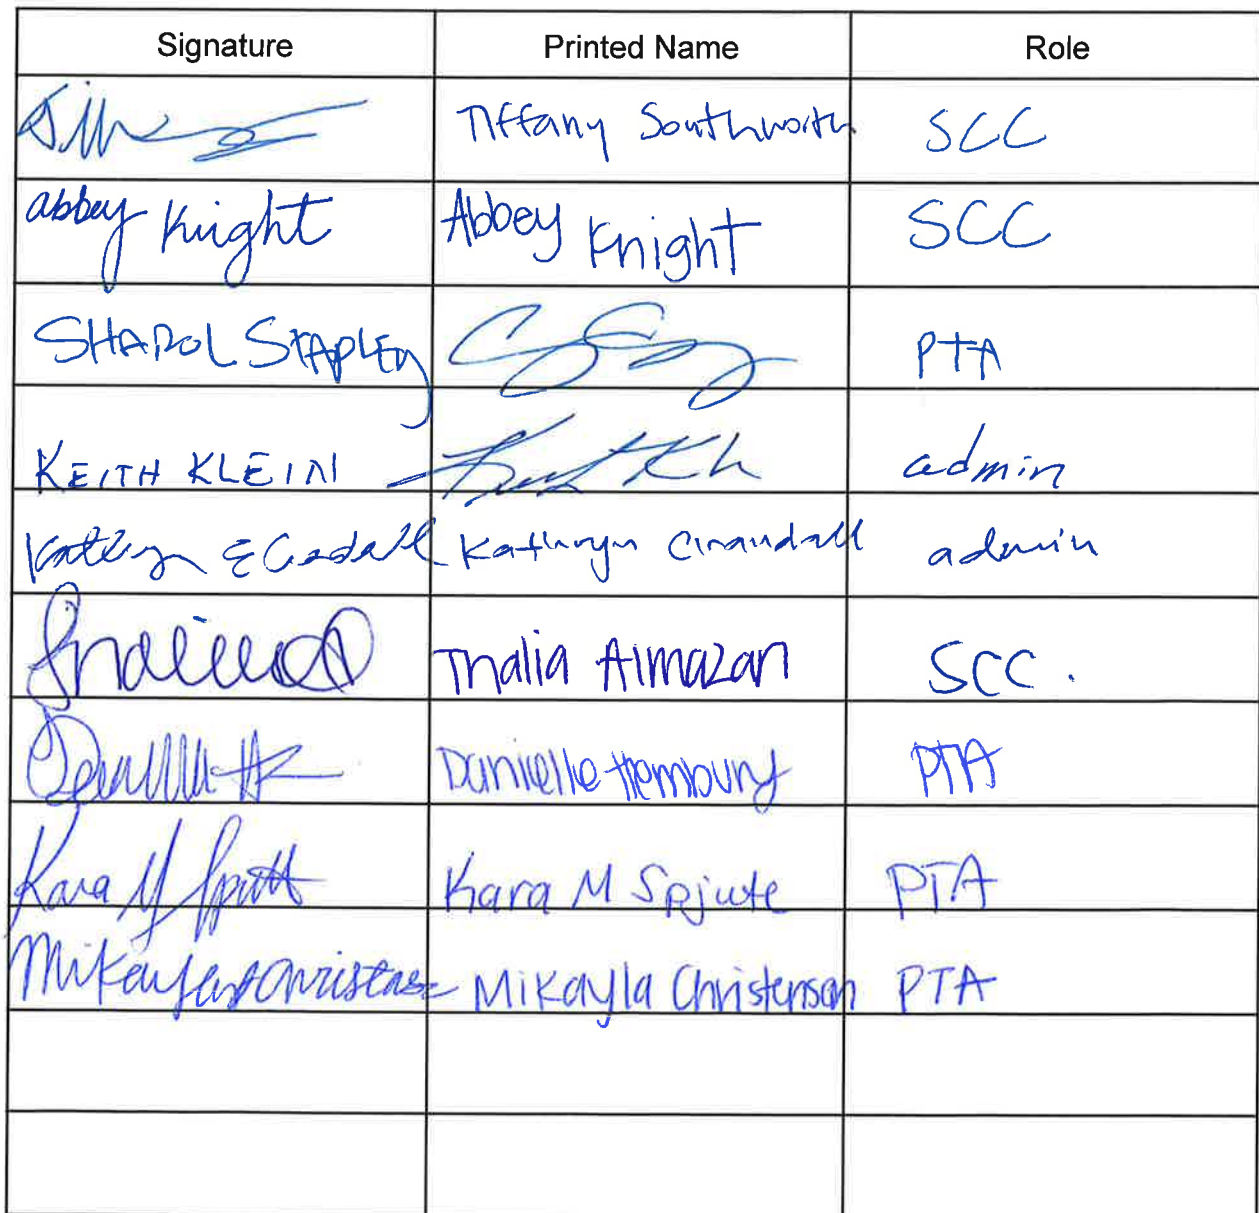 Signature Printed Name Role
Tiffany Southworth SCC
abbey Knight Abbey Knight SCC
SHAROL STAPLEY PTA
KEITH KLEIN admin
Kathryn Crandall admin
Thalia Almazan SCC.
Danielle Hembury PTA
Kara M Kara M Spjute PTA
Mikayla Christenson PTA